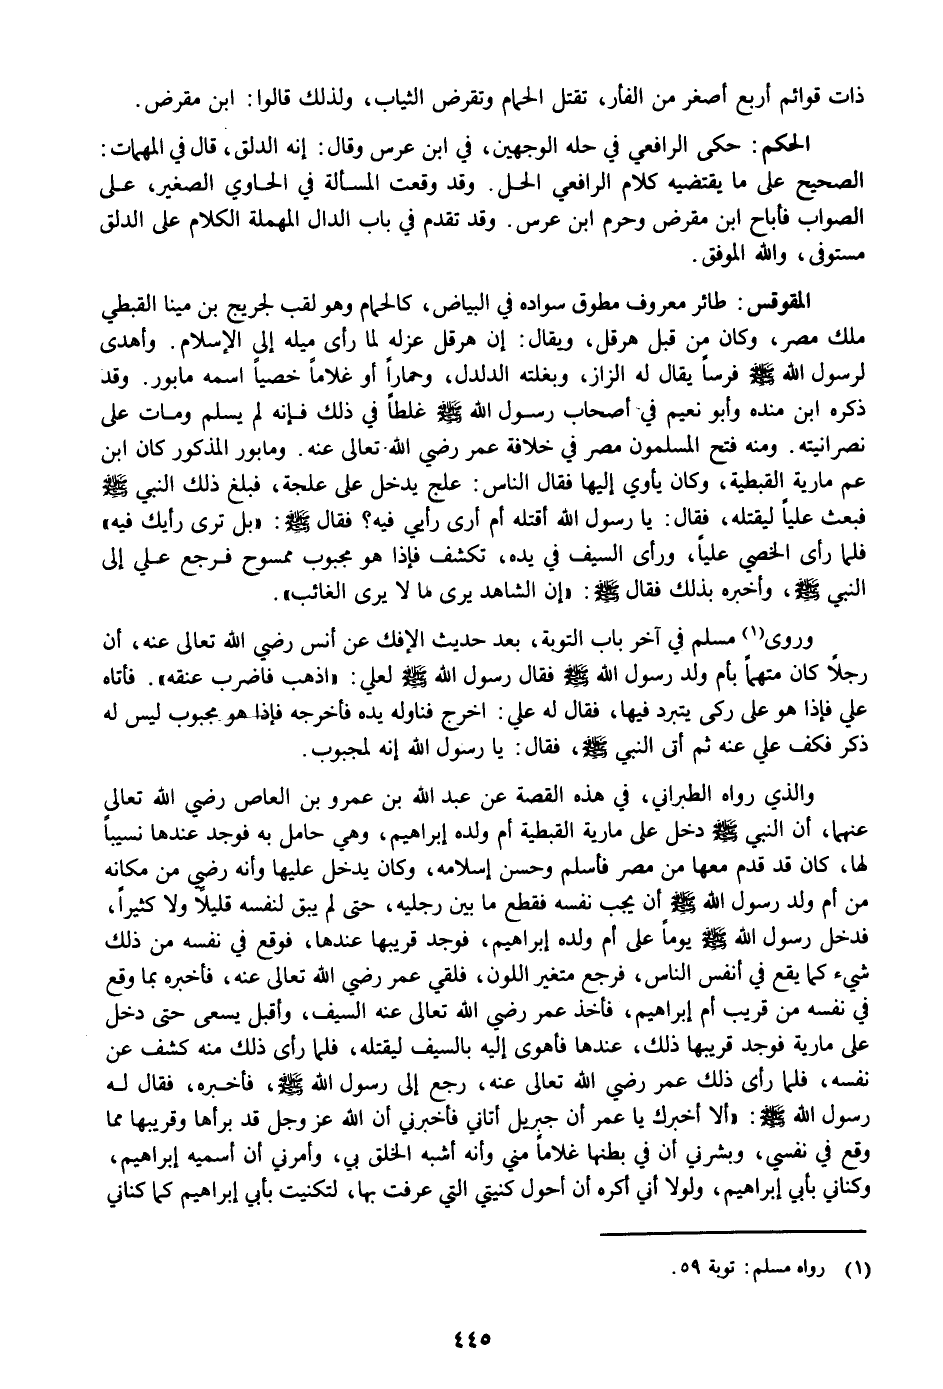 ذات قوائم أربع أصغر من الفأر، تقتل الحمام وتقرض الثياب، ولذلك قالوا: ابن مقرض.
الحكم: حكى الرافعي في حله الوجهين، في ابن عرس وقال: إنه الدلق، قال في المهمات:
الصحيح على ما يقتضيه كلام الرافعي الحل. وقد وقعت المسألة في الحاوي الصغير، على
الصواب فأباح ابن مقرض وحرم ابن عرس. وقد تقدم في باب الدال المهملة الكلام على الدلق
مستوفى، والله الموفق.
المقوقس: طائر معروف مطوق سواده في البياض، كالحمام وهو لقب لجريج بن مينا القبطي
ملك مصر، وكان من قبل هرقل، ويقال: إن هرقل عزله لما رأى ميله إلى الإسلام. وأهدى
لرسول الله ﷺ فرساً يقال له الزاز، وبغلته الدلدل، وحماراً أو غلاماً خصياً اسمه مابور. وقد
ذكره ابن منده وأبو نعيم في أصحاب رسول الله ﷺ غلطاً في ذلك فإنه لم يسلم ومات على
نصرانيته. ومنه فتح المسلمون مصر في خلافة عمر رضي الله تعالى عنه. ومابور المذكور كان ابن
عم مارية القبطية، وكان يأوي إليها فقال الناس: علج يدخل على علجة، فبلغ ذلك النبي ﷺ
فبعث علياً ليقتله، فقال: يا رسول الله أقتله أم أرى رأيي فيه؟ فقال ﷺ: «بل ترى رأيك فيه»
فلما رأى الخصي علياً، ورأى السيف في يده، تكشف فإذا هو مجبوب ممسوح فرجع علي إلى
النبي ﷺ، وأخبره بذلك فقال ﷺ: «إن الشاهد يرى ما لا يرى الغائب».
وروى(١) مسلم في آخر باب التوبة، بعد حديث الإفك عن أنس رضي الله تعالى عنه، أن
رجلاً كان متهماً بأم ولد رسول الله ﷺ فقال رسول الله ﷺ لعلي: «اذهب فاضرب عنقه». فأتاه
علي فإذا هو على ركى يتبرد فيها، فقال له علي: اخرج فناوله يده فأخرجه فإذا هو مجبوب ليس له
ذكر فكف علي عنه ثم أتى النبي ﷺ، فقال: يا رسول الله إنه لمجبوب.
والذي رواه الطبراني، في هذه القصة عن عبد الله بن عمرو بن العاص رضي الله تعالى
عنهما، أن النبي ﷺ دخل على مارية القبطية أم ولده إبراهيم، وهي حامل به فوجد عندها نسيباً
لها، كان قد قدم معها من مصر فأسلم وحسن إسلامه، وكان يدخل عليها وأنه رضي من مكانه
من أم ولد رسول الله ﷺ أن يجب نفسه فقطع ما بين رجليه، حتى لم يبق لنفسه قليلاً ولا كثيراً،
فدخل رسول الله ﷺ يوماً على أم ولده إبراهيم، فوجد قريبها عندها، فوقع في نفسه من ذلك
شيء كما يقع في أنفس الناس، فرجع متغير اللون، فلقي عمر رضي الله تعالى عنه، فأخبره بما وقع
في نفسه من قريب أم إبراهيم، فأخذ عمر رضي الله تعالى عنه السيف، وأقبل يسعى حتى دخل
على مارية فوجد قريبها ذلك، عندها فأهوى إليه بالسيف ليقتله، فلما رأى ذلك منه كشف عن
نفسه، فلما رأى ذلك عمر رضي الله تعالى عنه، رجع إلى رسول الله ﷺ، فأخبره، فقال له
رسول الله ﷺ: «ألا أخبرك يا عمر أن جبريل أتاني فأخبرني أن الله عز وجل قد برأها وقريبها مما
وقع في نفسي، وبشرني أن في بطنها غلاماً مني وأنه أشبه الخلق بي، وأمرني أن أسميه إبراهيم،
وكناني بأبي إبراهيم، ولولا أني أكره أن أحول كنيتي التي عرفت بها، لتكنيت بأبي إبراهيم كما كناني
(١) رواه مسلم: توبة ٥٩.
٤٤٥